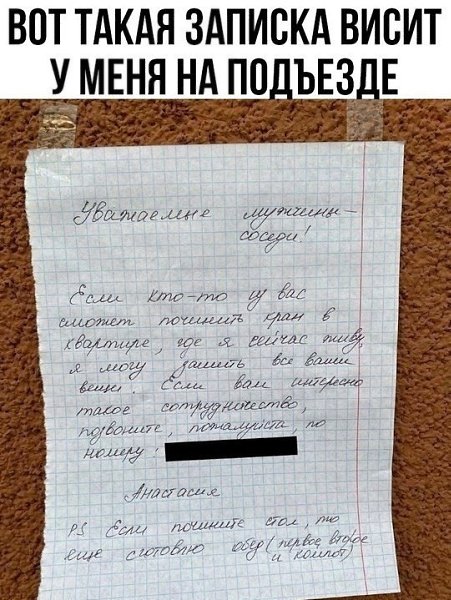 ВОТ ТАКАЯ ЗАПИСКА ВИСИТ
У МЕНЯ НА ПОДЪЕЗДЕ
Уважаемые мужчины –
соседи!
Если кто-то из вас
сможет починить кран в
квартире, где я сейчас живу,
я могу зашить все ваши
вещи. Если вам интересно
такое сотрудничество,
позвоните, пожалуйста, по
номеру:
Анастасия
PS Если почините стол, то
еще сготовлю обед (первое, второе
и компот)